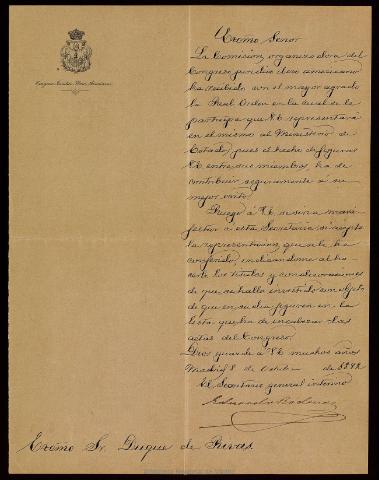 Excmo Señor
La Comisión organizadora del
Congreso jurídico ibero americano
ha recibido con el mayor agrado
la Real Orden en la cual se le
participa que V.E. representará
en el mismo al Ministerio de
Estado, pues el hecho de figurar
V.E. entre sus miembros, ha de
contribuir seguramente á su
mejor éxito
Ruego á V.E. se sirva mani
festar á esta Secretaría si acepta
la representación que se le ha
conferido, indicándome al ha
cerlo los títulos y condecoraciones
de que se halla investido con objeto
de que en su día figuren en la
lista que ha de encabezar las
actas del Congreso.
Dios guarde á V.E. muchos años
Madrid 8 de Octubre de 1892
El Secretario general interino
Excmo Sr. Duque de Rivas